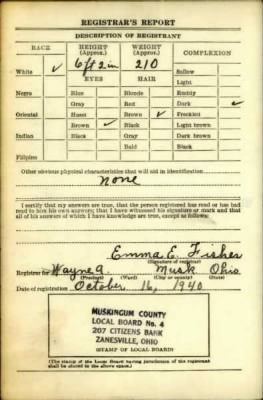 REGISTRAR'S REPORT
DESCRIPTION OF REGISTRANT
RACE HEIGHT (Approx.) WEIGHT (Approx.) COMPLEXION
6 ft 2 in 210
White ✓ EYES HAIR Sallow
Light
Negro Blue Blonde Ruddy
Gray Red Dark ✓
Oriental Hazel Brown ✓ Freckled
Brown ✓ Black Light brown
Indian Black Gray Dark brown
Bald Black
Filipino
Other obvious physical characteristics that will aid in identification
None
I certify that my answers are true; that the person registered has read or has had
read to him his own answers; that I have witnessed his signature or mark and that
all of his answers of which I have knowledge are true, except as follows:
Emma E. Fisher
(Signature of registrar)
Registrar for Wayne A. Musk Ohio
(Precinct) (Ward) (City or county) (State)
Date of registration October 16, 1940
MUSKINGUM COUNTY
LOCAL BOARD No. 4
207 CITIZENS BANK
ZANESVILLE, OHIO
(STAMP OF LOCAL BOARD)
(The stamp of the Local Board having jurisdiction of the registrant
shall be placed in the above space.)